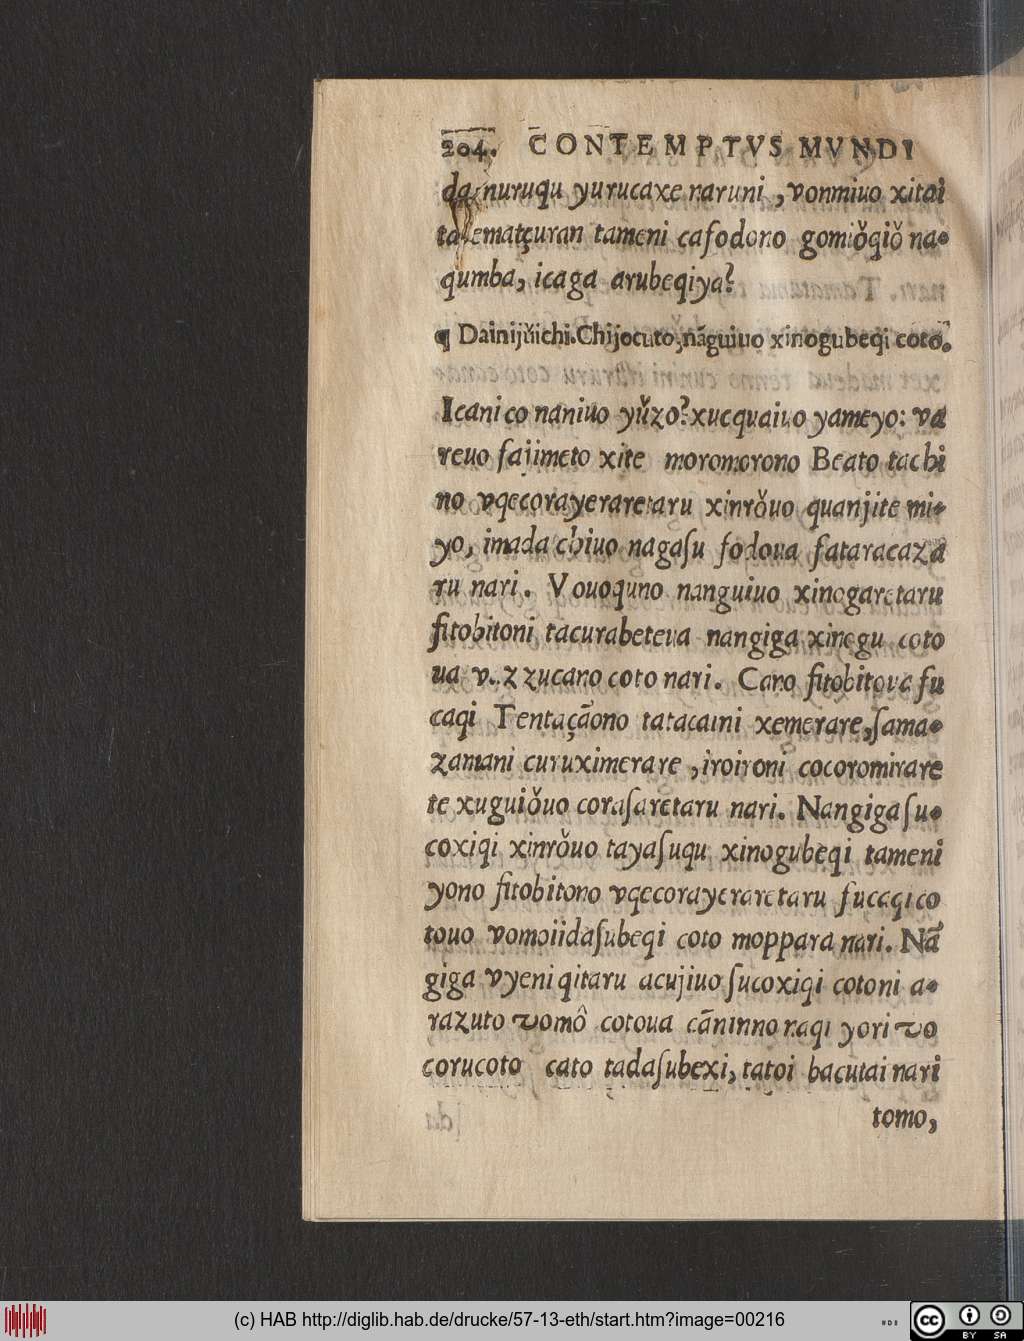 204. CONTEMPTVS MVNDI
da nuruqu yurucaxe naruni, vonmiuo xitai
tatematçuran tameni cafodono gomiǒqiǒ na-
qumba, icaga arubeqiya?
¶ Dainijǔichi. Chijocuto, nãguiuo xinogubeqi coto.
Icani co naniuo yǔzo? xucquaiuo yameyo: va
reuo ſajimeto xite moromorono Beato tachi
no vqecorayeraretaru xinrǒuo quanjite mi-
yo, imada chiuo nagaſu fodoua fataracaza
ru nari. Vouoquno nanguiuo xinogaretaru
fitobitoni tacurabeteua nangiga xinogu coto
ua v..zzucano coto nari. Cano fitobitoua fu
caqi Tentaçãono tatacaini xemerare, ſama-
zamani curuximerare, iroironi cocoromirare
te xuguiǒuo coraſaretaru nari. Nangiga ſu-
coxiqi xinrǒuo tayaſuqu xinogubeqi tameni
yono fitobitono vqecorayeraretaru fucaqi co
touo vomoiidaſubeqi coto moppara nari. Nã
giga vyeni qitaru acujiuo ſucoxiqi cotoni a-
razuto vomô cotoua cãninno naqi yori vo
corucoto cato tadaſubexi, tatoi bacutai nari
tomo,
(c) HAB http://diglib.hab.de/drucke/57-13-eth/start.htm?image=00216
cc BY SA